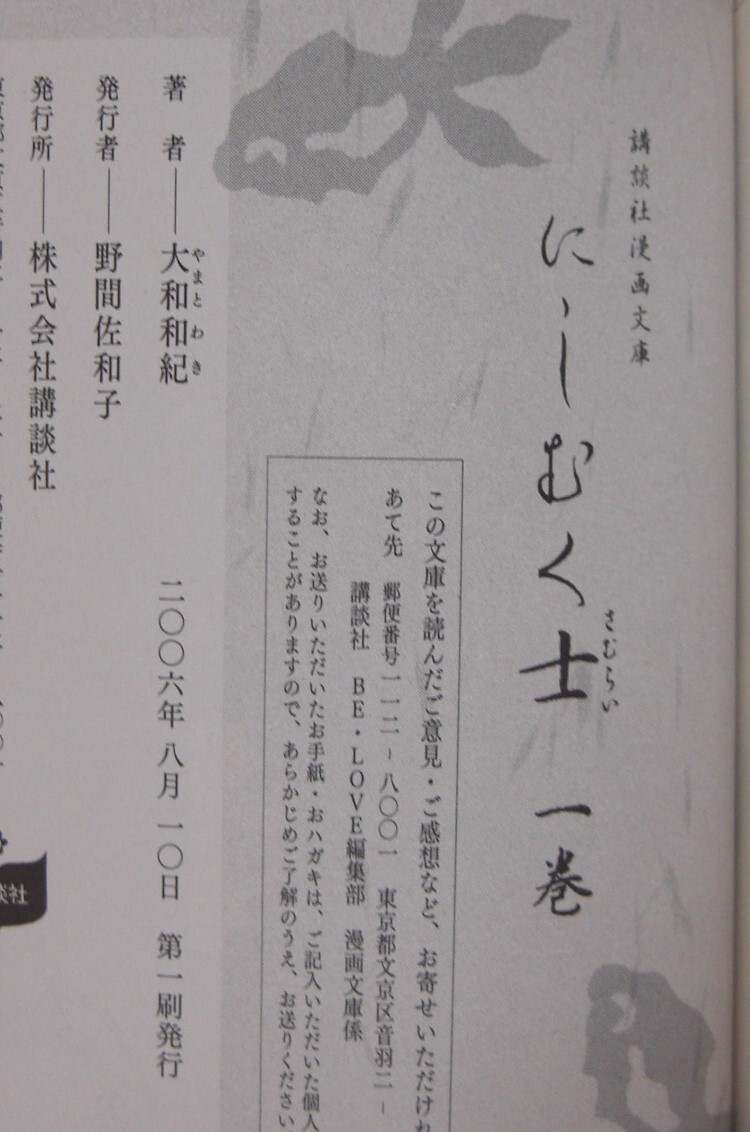 講談社漫画文庫
にゝしむく士 一巻
さむらい
この文庫を読んだご意見・ご感想など、お寄せいただけれ
あて先 郵便番号一一二－八〇〇一 東京都文京区音羽二－
講談社 BE・LOVE編集部 漫画文庫係
なお、お送りいただいたお手紙・おハガキは、ご記入いただいた個人
することがありますので、あらかじめご了解のうえ、お送りください
二〇〇六年八月一〇日 第一刷発行
著 者――大和和紀
やまと わき
発行者――野間佐和子
発行所――株式会社講談社
談社